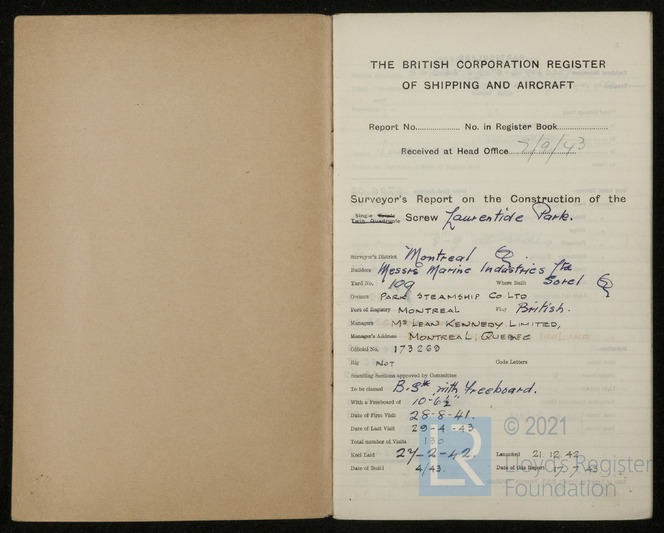 THE BRITISH CORPORATION REGISTER
OF SHIPPING AND AIRCRAFT
Report No. No. in Register Book
Received at Head Office 7/9/43
Surveyor's Report on the Construction of the
Single
Screw Laurentide Park.
Surveyor's District Montreal
Builders Messrs Marine Industries Ltd
Yard No. 109 Where Built Sorel
Owners PARK STEAMSHIP CO LTD
Port of Registry MONTREAL Flag British.
Managers Mc LEAN KENNEDY LIMITED,
Manager's Address MONTREAL, QUEBEC
Official No. 173269
Rig NOT Code Letters
Scantling Sections approved by Committee
To be classed B.S* with freeboard.
With a Freeboard of 10'-6½"
Date of First Visit 28-8-41.
Date of Last Visit 29-4-43
Total number of Visits 130
Keel Laid 27-2-42. Launched 21.12.42
Date of Build 4/43. Date of this Report 43
LR
© 2021
Lloyd's Register
Foundation